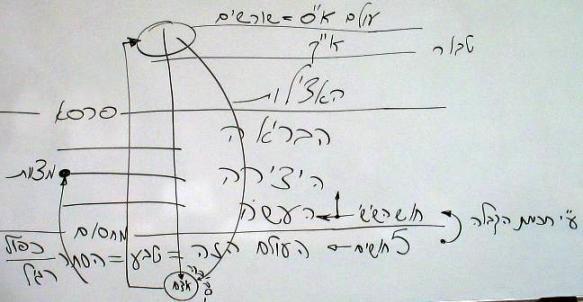 עולם א"ס = שורשים
א"ק
טבור
האצילות
פרסא
הבריאה
מצוות
היצירה
העשיה ← חוש הששי
ע"י חכמת הקבלה
מחסום
5 חושים ← העולם הזה = טבע = הסתר כפול
רגיל
אדם